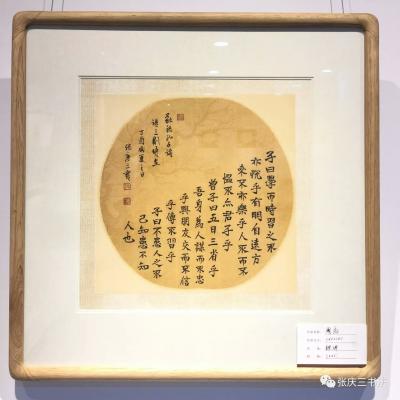 子曰學而時習之不
亦說乎有朋自遠方
來不亦樂乎人不而不
慍不亦君子乎
曾子曰五日三省乎
吾身為人謀而不忠
乎與朋友交而不信
乎傳不習乎
子曰不患人之不
己知患不知
人也
敬錄孔子論
語三則時在
丁酉盛夏之日
張慶三書
张庆三书法